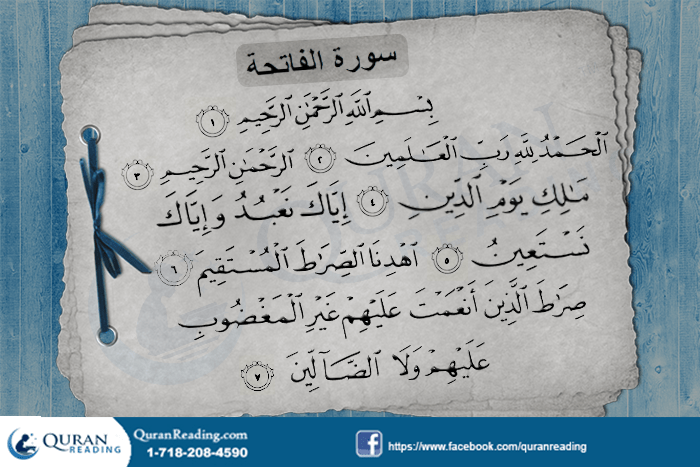 سورة الفاتحة
بِسْمِ ٱللَّهِ ٱلرَّحْمَٰنِ ٱلرَّحِيمِ ١
ٱلْحَمْدُ لِلَّهِ رَبِّ ٱلْعَٰلَمِينَ ٢ ٱلرَّحْمَٰنِ ٱلرَّحِيمِ ٣
مَٰلِكِ يَوْمِ ٱلدِّينِ ٤ إِيَّاكَ نَعْبُدُ وَإِيَّاكَ
نَسْتَعِينُ ٥ ٱهْدِنَا ٱلصِّرَٰطَ ٱلْمُسْتَقِيمَ ٦
صِرَٰطَ ٱلَّذِينَ أَنْعَمْتَ عَلَيْهِمْ غَيْرِ ٱلْمَغْضُوبِ
عَلَيْهِمْ وَلَا ٱلضَّآلِّينَ ٧
QURAN
READING
QuranReading.com
1-718-208-4590
https://www.facebook.com/quranreading